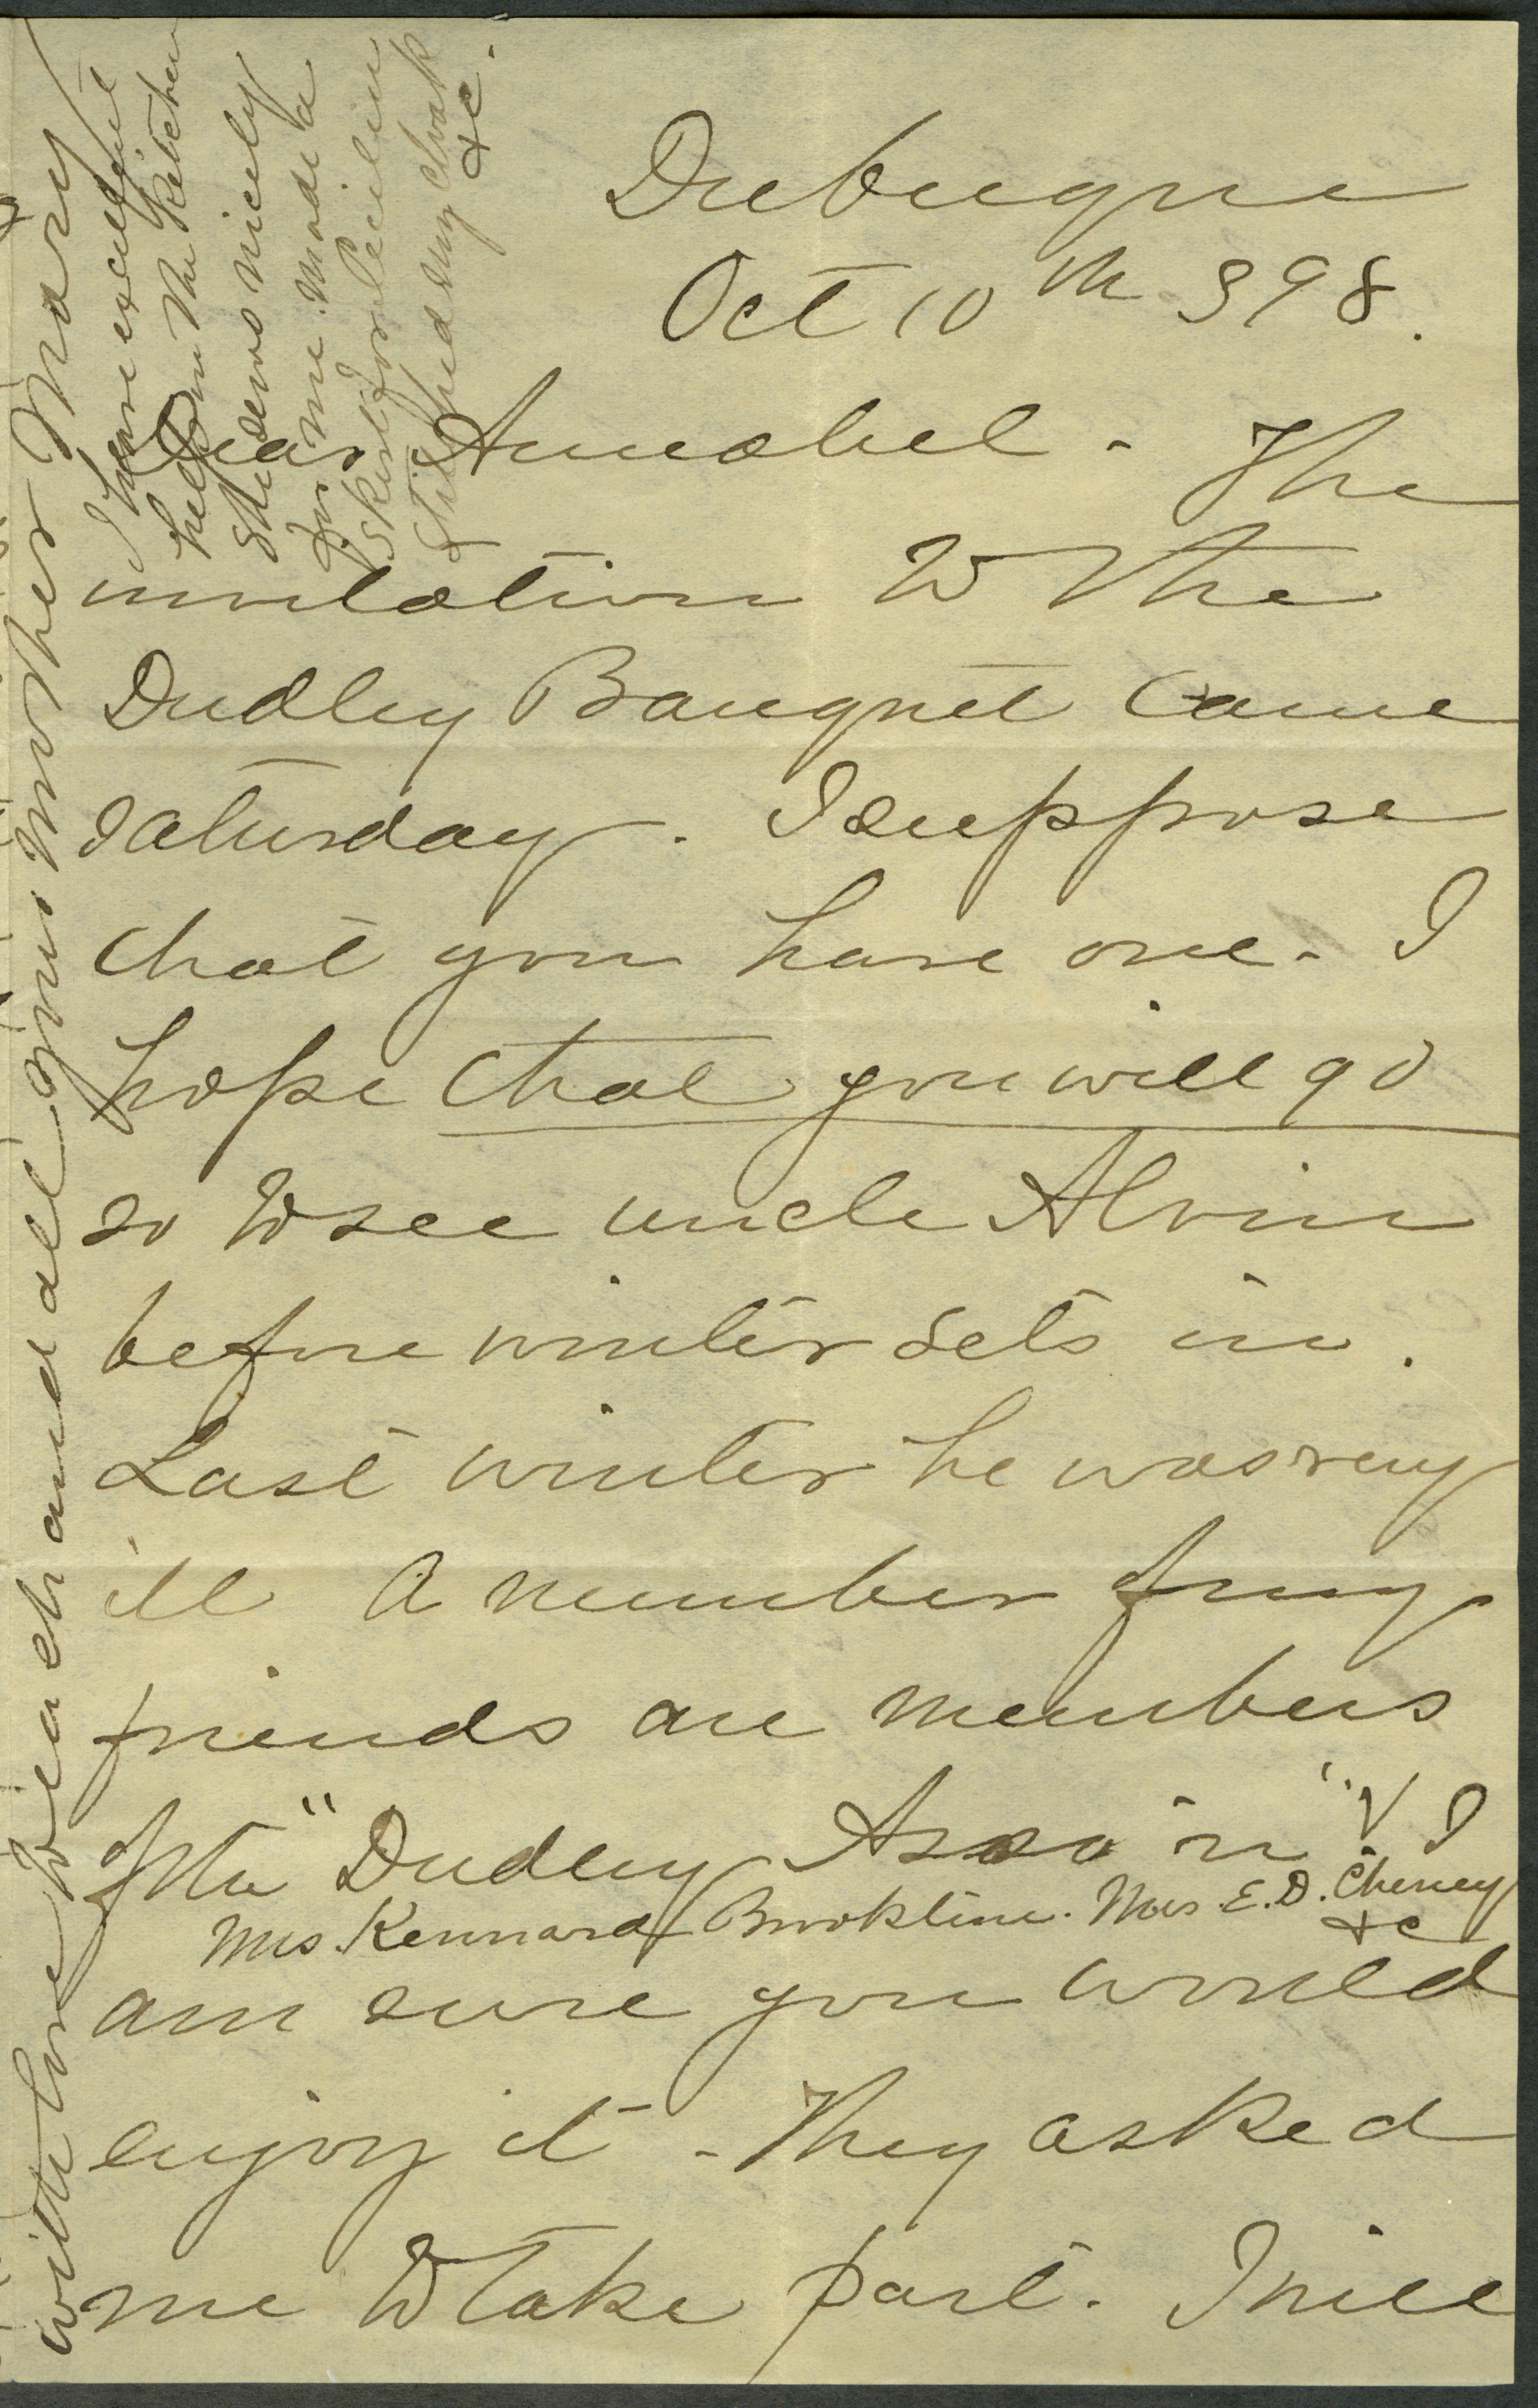 Dubuque
Oct 10th 898.
Dear Annabel - The
invitation to the
Dudley Banquet came
Saturday. I suppose
that you have one - I
hope that you will go
so to see uncle Alvin
before winter sets in.
Last winter he was very
ill A number of my
friends are members
of the "Dudley Asso'n". I
Mrs Kennard Brookline. Mrs. E. D. Cheney
&c
am sure you would
enjoy it - They asked
me to take part. I will
with love to each and all your mother Mary
I have excellent
help in the kitchen
She sews nicely
for me. Made a
skirt for Cecilia
stitched my cloak
&c.